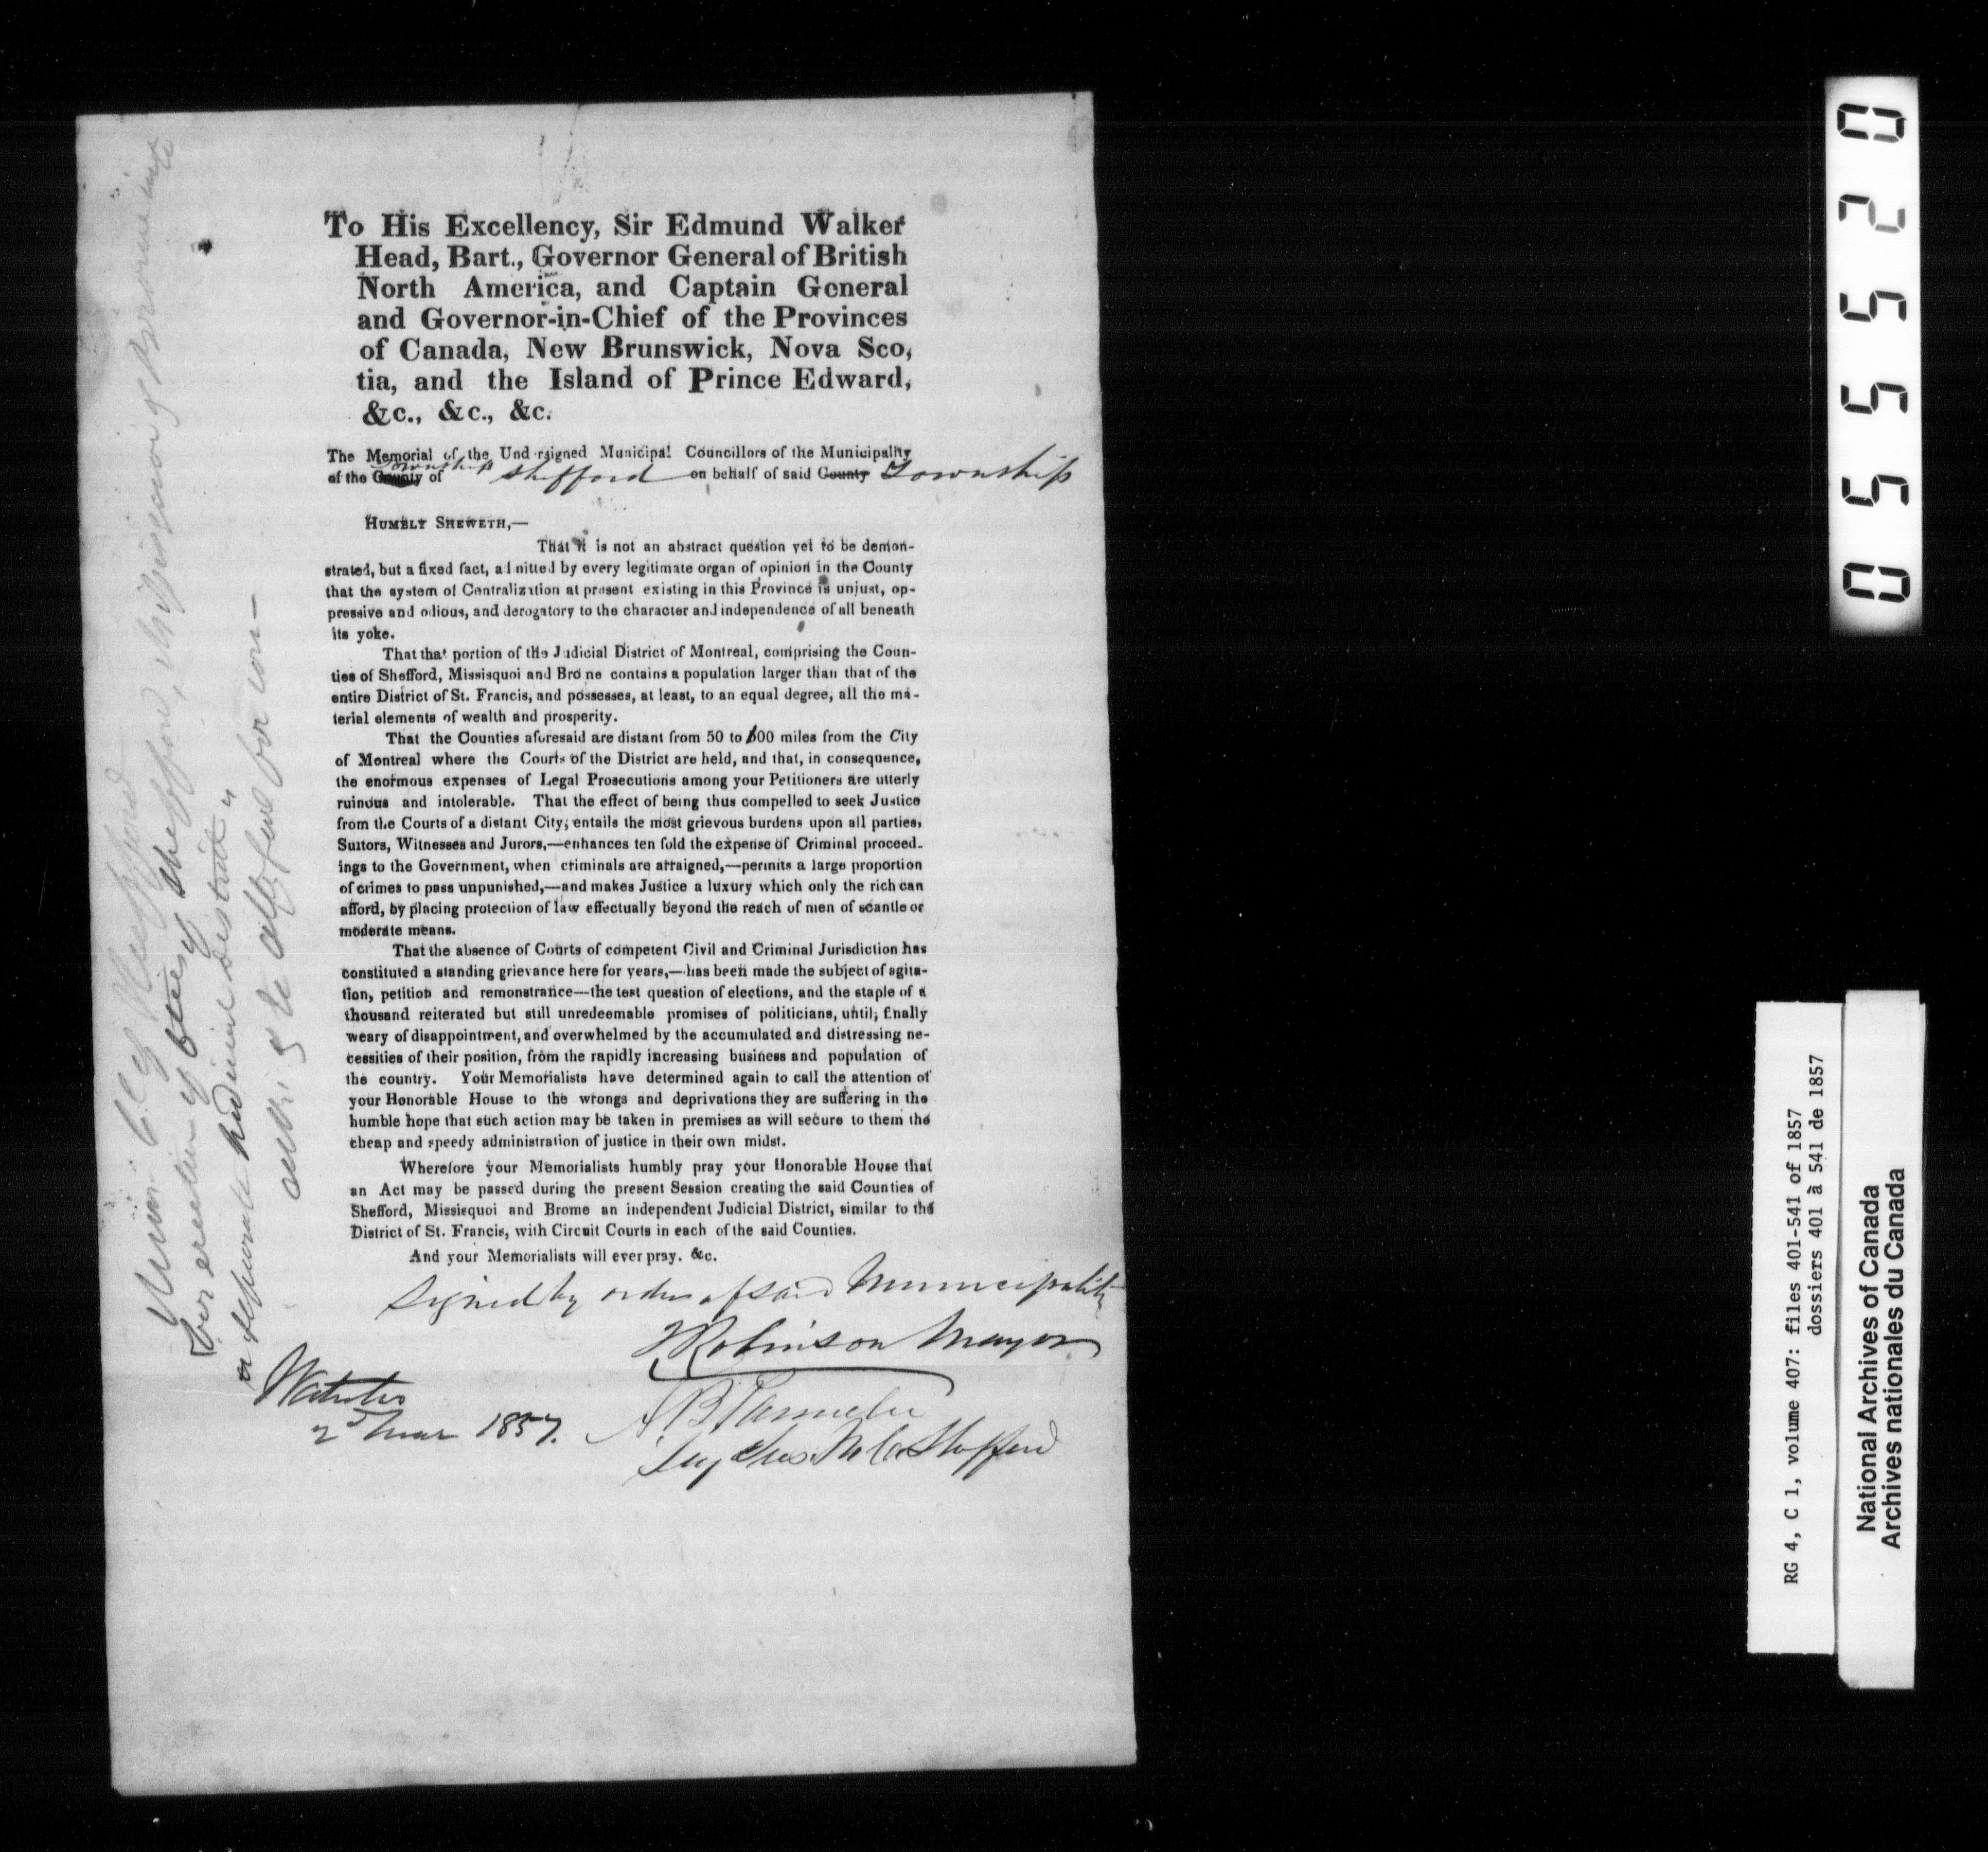 To His Excellency, Sir Edmund Walker
Head, Bart., Governor General of British
North America, and Captain General
and Governor-in-Chief of the Provinces
of Canada, New Brunswick, Nova Sco,
tia, and the Island of Prince Edward,
&c., &c., &c.
The Memorial of the Und rsigned Municipal Councillors of the Municipality
township
of the County of Shefford on behalf of said County Township
HUMBLY SHEWETH,—
That it is not an abstract question yet to be demon-
strated, but a fixed fact, admitted by every legitimate organ of opinion in the County
that the system of Centralization at present existing in this Province is unjust, op-
pressive and odious, and derogatory to the character and independence of all beneath
its yoke.
That that portion of the Judicial District of Montreal, comprising the Coun-
ties of Shefford, Missisquoi and Bro ne contains a population larger than that of the
entire District of St. Francis, and possesses, at least, to an equal degree, all the ma-
terial elements of wealth and prosperity.
That the Counties aforesaid are distant from 50 to 100 miles from the City
of Montreal where the Courts of the District are held, and that, in consequence,
the enormous expenses of Legal Prosecutions among your Petitioners are utterly
ruinous and intolerable. That the effect of being thus compelled to seek Justice
from the Courts of a distant City, entails the most grievous burdens upon all parties,
Suitors, Witnesses and Jurors,—enhances ten fold the expense of Criminal proceed-
ings to the Government, when criminals are arraigned,—permits a large proportion
of crimes to pass unpunished,—and makes Justice a luxury which only the rich can
afford, by placing protection of law effectually beyond the reach of men of scantle or
moderate means.
That the absence of Courts of competent Civil and Criminal Jurisdiction has
constituted a standing grievance here for years,—has been made the subject of agita-
tion, petition and remonstrance—the test question of elections, and the staple of a
thousand reiterated but still unredeemable promises of politicians, until, finally
weary of disappointment, and overwhelmed by the accumulated and distressing ne-
cessities of their position, from the rapidly increasing business and population of
the country. Your Memorialists have determined again to call the attention of
your Honorable House to the wrongs and deprivations they are suffering in the
humble hope that such action may be taken in premises as will secure to them the
cheap and speedy administration of justice in their own midst.
Wherefore your Memorialists humbly pray your Honorable House that
an Act may be passed during the present Session creating the said Counties of
Shefford, Missisquoi and Brome an independent Judicial District, similar to the
District of St. Francis, with Circuit Courts in each of the said Counties.
And your Memorialists will ever pray. &c.
Signed by order of said Municipality
Robinson Mayor
Waterloo
2d Mar 1857.
A B Parmelee
Secy Treas. M Co Shefford
C. of Shefford
for erection of Cties of Shefford, Missisquoi & Brome into
a separate Judicial District
05520
RG 4, C 1, volume 407: files 401-541 of 1857
dossiers 401 à 541 de 1857
National Archives of Canada
Archives nationales du Canada